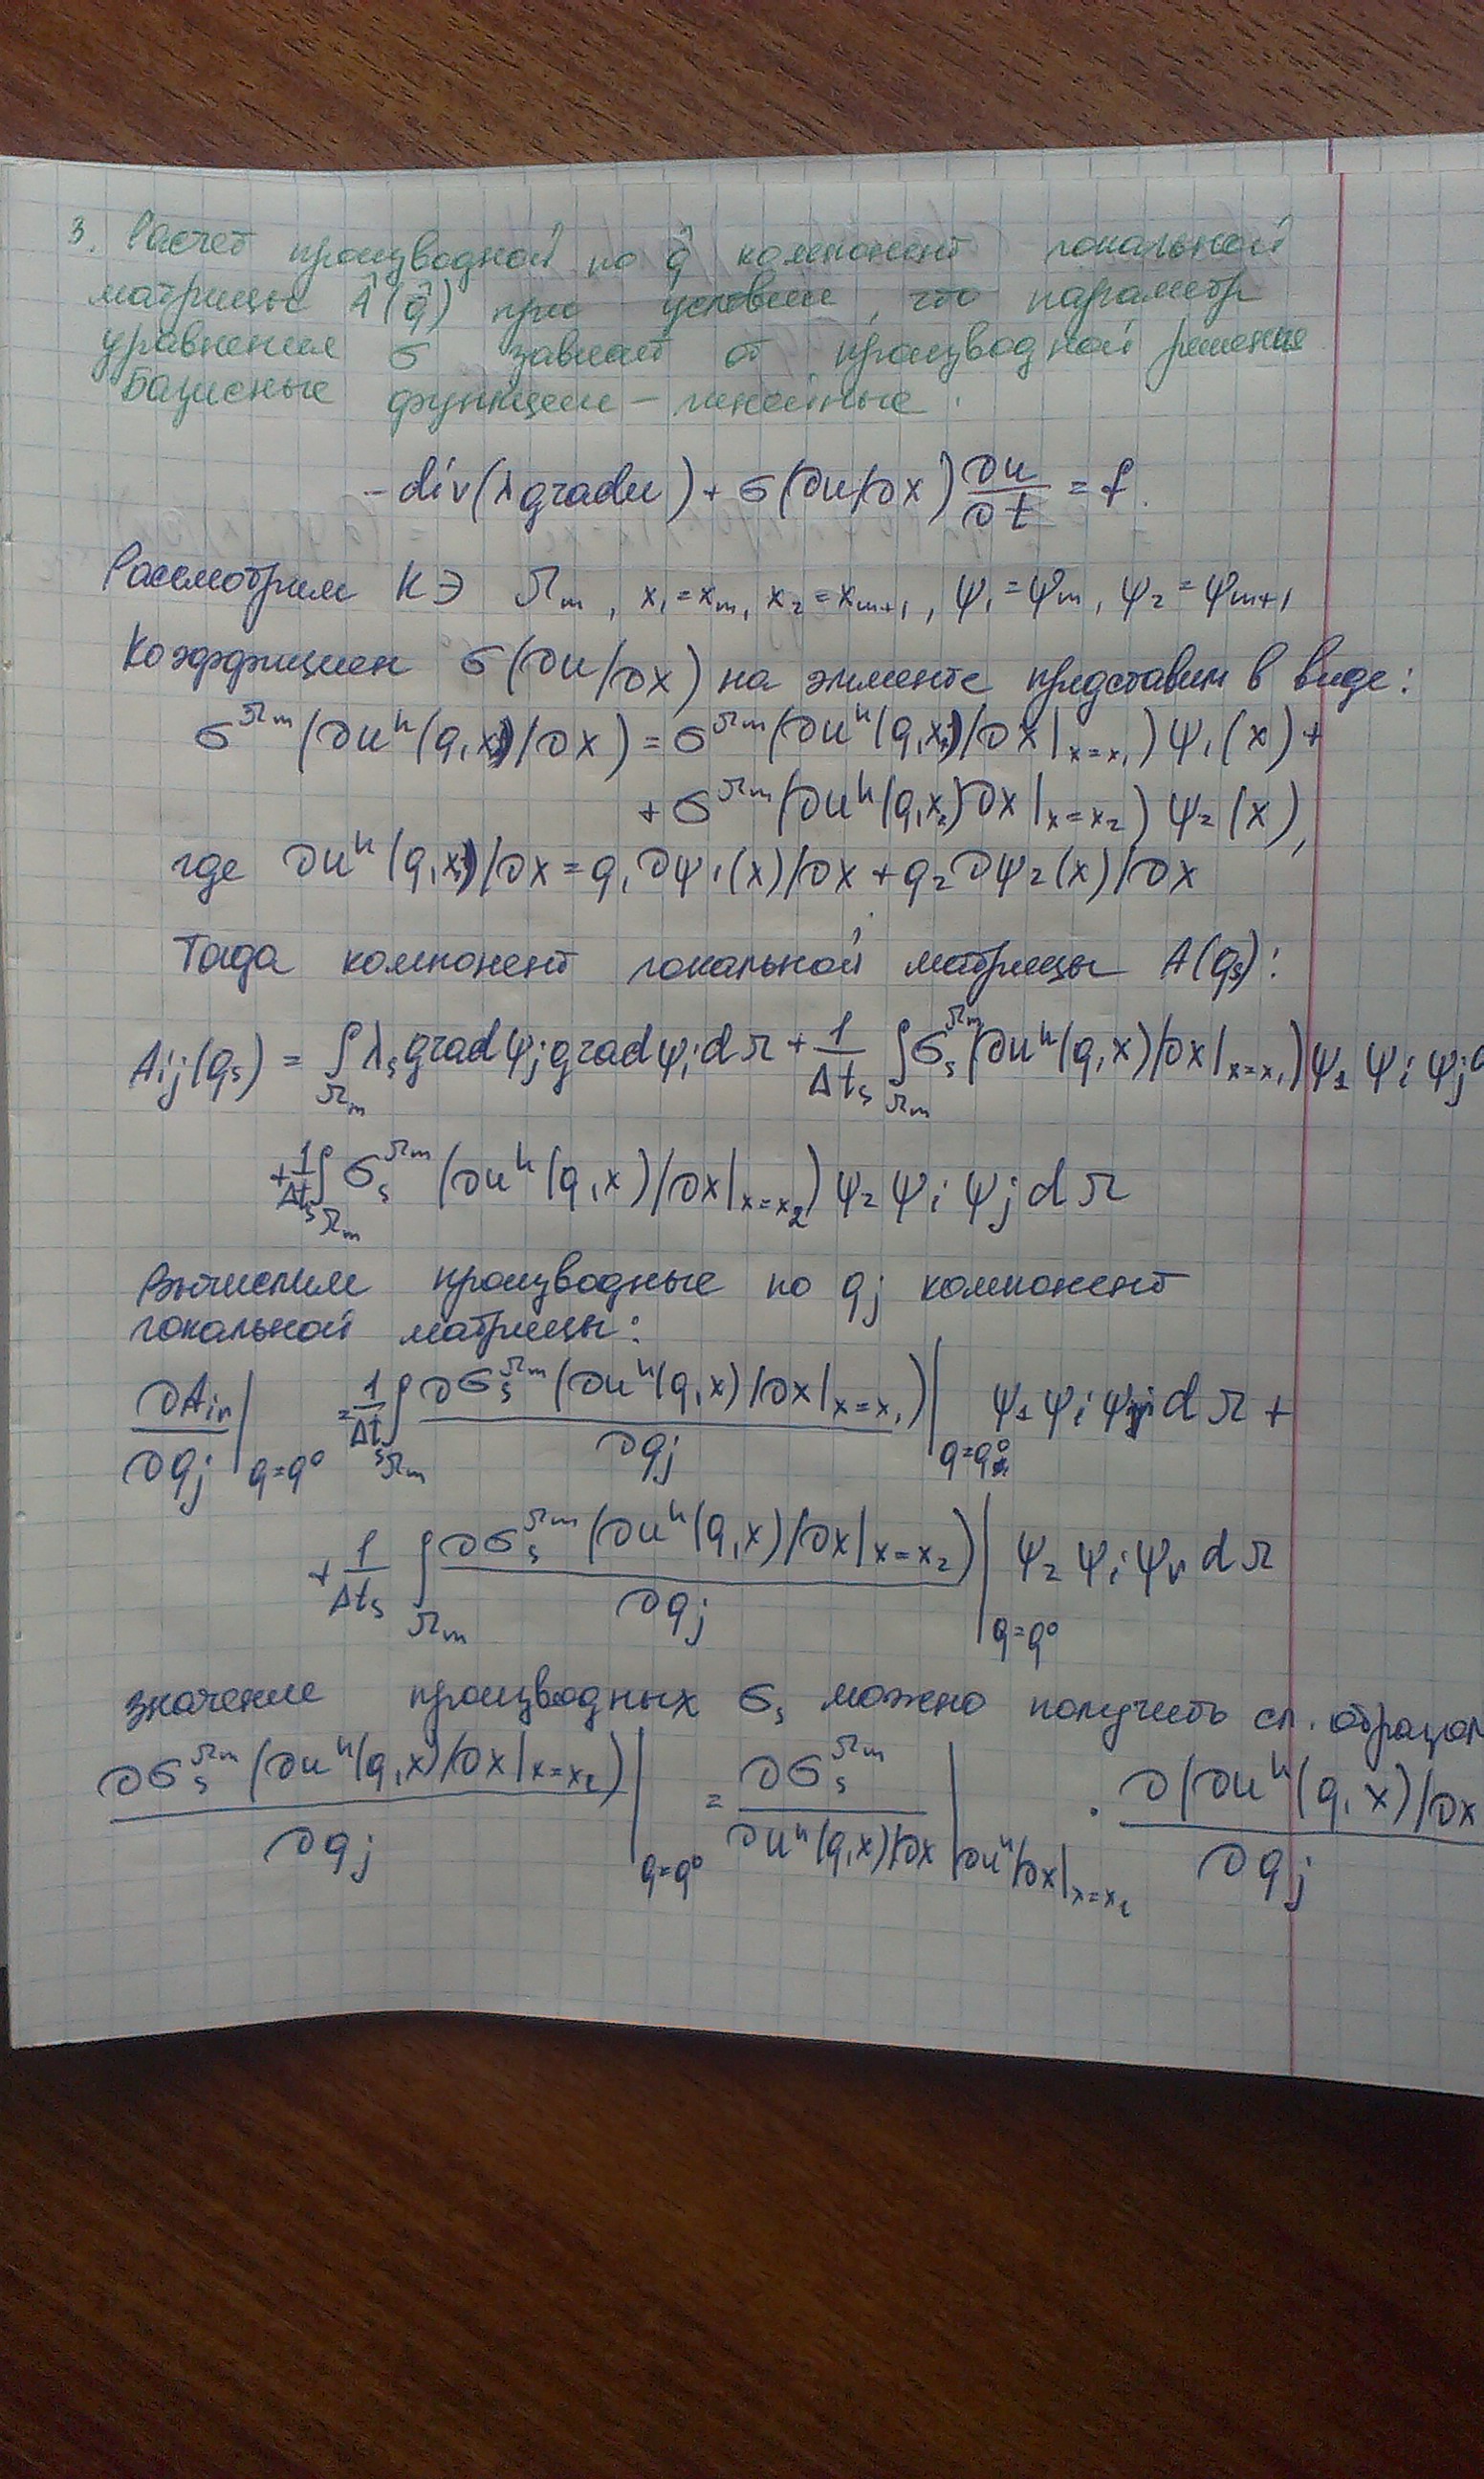 3. Расчет производной по q̂ компонент локальной
матрицы Â(q̂) при условии, что параметр
уравнения σ зависит от производной решения
Базисные функции – линейные.
-div(λ gradu) + σ(∂u/∂x) ∂u/∂t = f.
Рассмотрим КЭ Ωm, x₁=xm, x₂=xm+1, ψ₁=ψm, ψ₂=ψm+1
Коэффициен σ(∂u/∂x) на элементе представим в виде:
σ^Ωm(∂u^h(q,x)/∂x) = σ^Ωm(∂u^h(q,x)/∂x|x=x₁)ψ₁(x) +
+ σ^Ωm(∂u^h(q,x)/∂x|x=x₂)ψ₂(x),
где ∂u^h(q,x)/∂x = q₁∂ψ₁(x)/∂x + q₂∂ψ₂(x)/∂x
Тогда компонент локальной матрицы A(qs):
Aij(qs) = ∫Ωm λs gradψj gradψi dΩ + 1/Δts ∫Ωm σs^Ωm(∂u^h(q,x)/∂x|x=x₁)ψ₁ψiψj d
+ 1/Δts ∫Ωm σs^Ωm(∂u^h(q,x)/∂x|x=x₂)ψ₂ψiψj dΩ
Вычислим производные по qj компонент
локальной матрицы:
∂Air/∂qj|q=q⁰ = 1/Δts ∫Ωm ∂σs^Ωm(∂u^h(q,x)/∂x|x=x₁)/∂qj|q=q⁰ ψ₁ψiψr dΩ +
+ 1/Δts ∫Ωm ∂σs^Ωm(∂u^h(q,x)/∂x|x=x₂)/∂qj|q=q⁰ ψ₂ψiψr dΩ
значение производных σs можно получить сл. образом
∂σs^Ωm(∂u^h(q,x)/∂x|x=x₂)/∂qj|q=q⁰ = ∂σs^Ωm/∂u^h(q,x)/∂x|∂u^h/∂x|x=x₂ · ∂(∂u^h(q,x)/∂x/∂qj